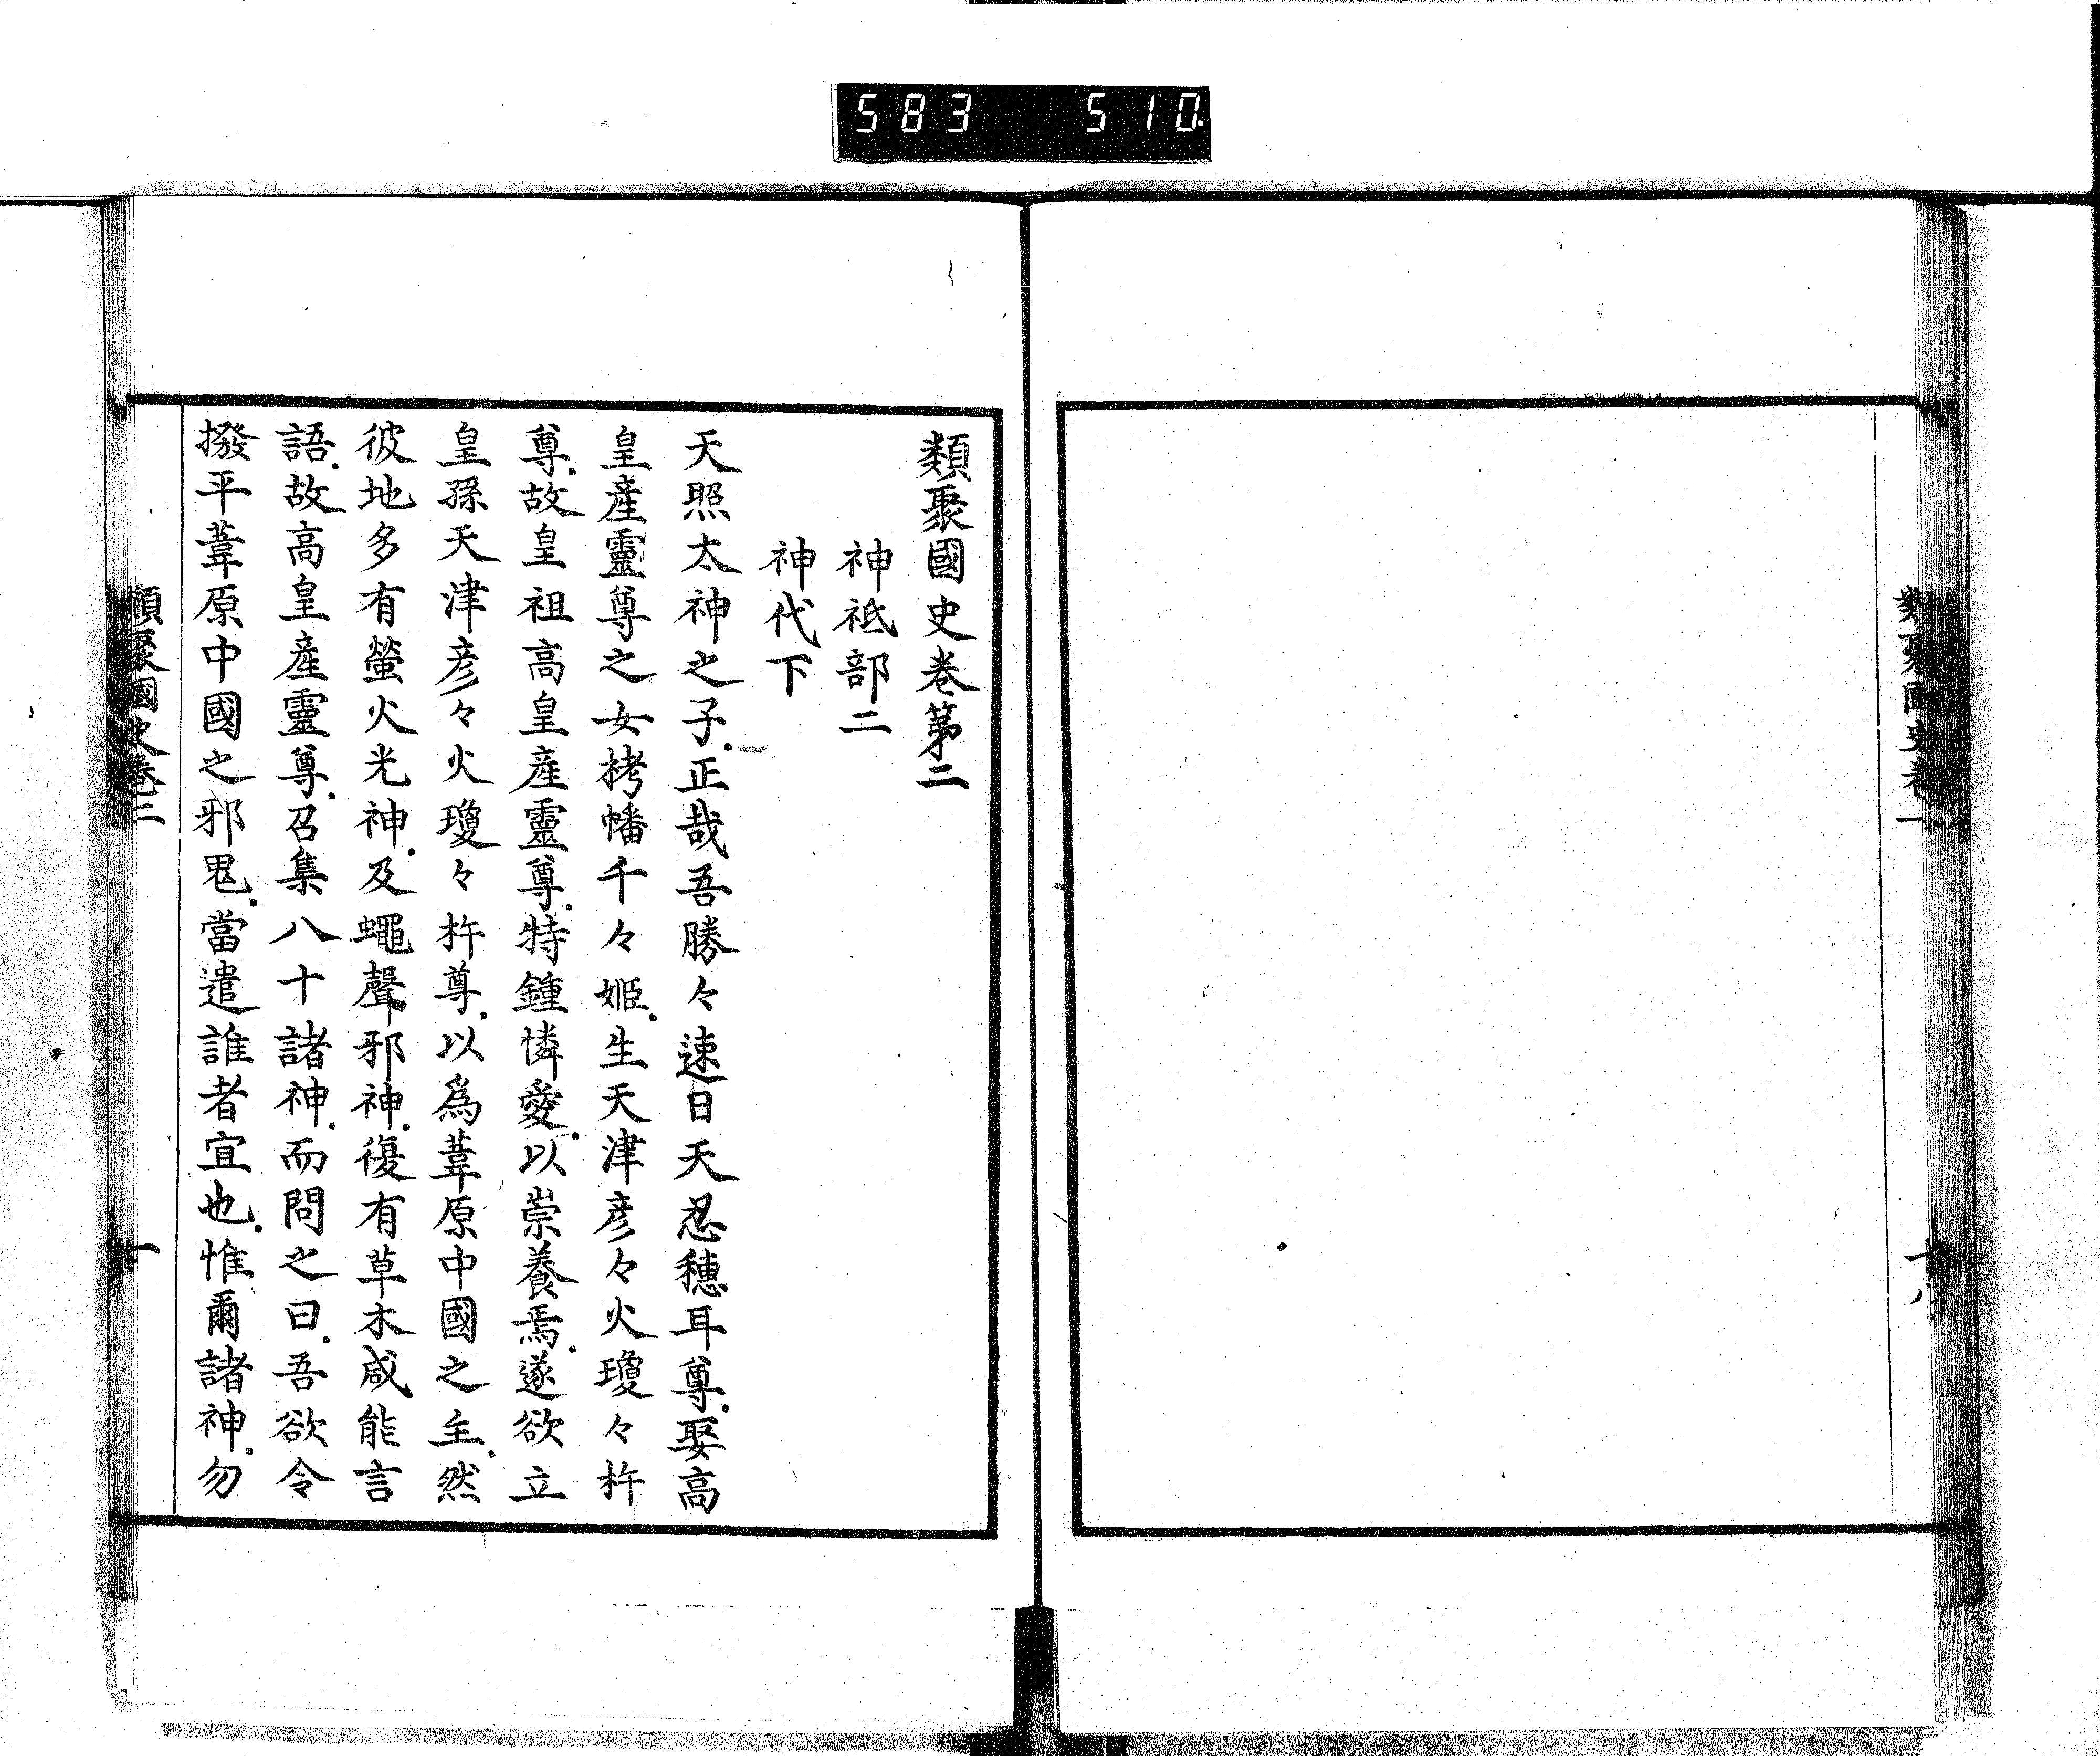 583 510
類聚國史卷一
十八
類聚國史卷第二
神祇部二
神代下
天照太神之子.正哉吾勝々速日天忍穗耳尊.娶高
皇產靈尊之女栲幡千々姬.生天津彥々火瓊々杵
尊.故皇祖高皇產靈尊.特鍾憐愛.以崇養焉.遂欲立
皇孫天津彥々火瓊々杵尊.以爲葦原中國之主.然
彼地多有螢火光神.及蠅聲邪神.復有草木咸能言
語.故高皇產靈尊.召集八十諸神.而問之曰.吾欲令
撥平葦原中國之邪鬼.當遣誰者宜也.惟爾諸神.勿
類聚國史卷二
一